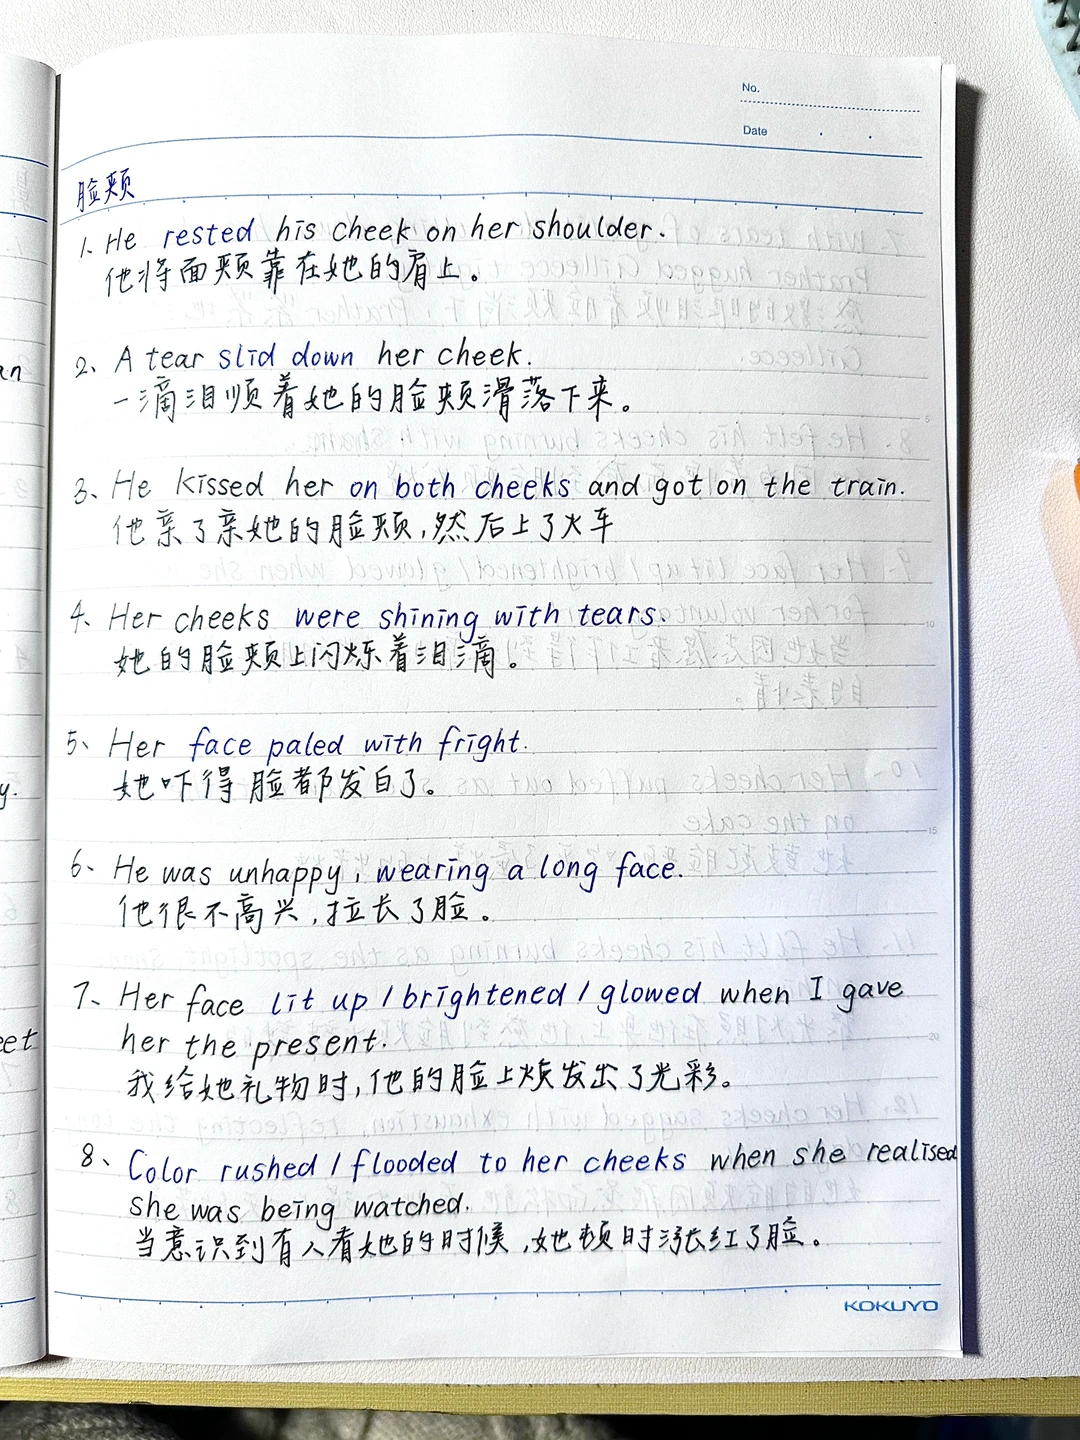 No.
Date
脸颊
1. He rested his cheek on her shoulder.
他将面颊靠在她的肩上。
2、A tear slid down her cheek.
一滴泪顺着她的脸颊滑落下来。
3、He kissed her on both cheeks and got on the train.
他亲了亲她的脸颊,然后上了火车
4、Her cheeks were shining with tears.
她的脸颊上闪烁着泪滴。
5、Her face paled with fright.
她吓得脸都发白了。
6、He was unhappy, wearing a long face.
他很不高兴,拉长了脸。
7、Her face lit up / brightened / glowed when I gave
her the present.
我给她礼物时,他的脸上焕发出了光彩。
8、Color rushed / flooded to her cheeks when she realised
she was being watched.
当意识到有人看她的时候,她顿时涨红了脸。
KOKUYO